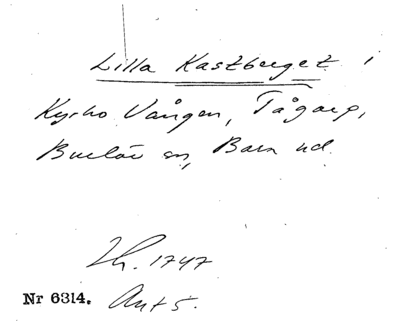 Lilla Kastberget i
Kyrko Vången, Tågarp,
Burlöv sn, Bara hd.
Lh. 1747
Nr 6314. Ant 5.